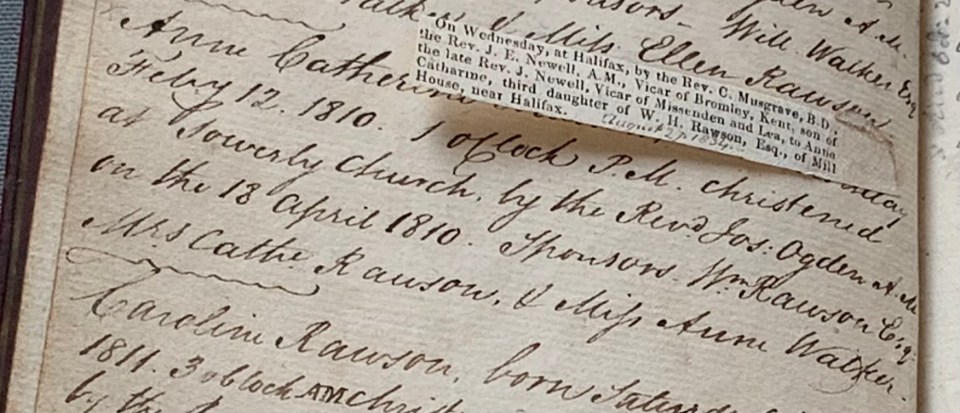 Sponsors - Will Walker Esq
Walker & Miss Ellen Rawson
On Wednesday, at Halifax, by the Rev. C. Musgrave, B.D.,
the Rev. J. E. Newell, A.M., Vicar of Bromley, Kent, son of
the late Rev. J. Newell, Vicar of Missenden and Lea, to Anne
Catharine, third daughter of W. H. Rawson, Esq., of Mill
House, near Halifax.
August 27 1834
Anne Catherine
Feby 12. 1810. 1 oClock P.M. christened
at Sowerby Church, by the Revd. Jos: Ogden A.M.
on the 18 April 1810. Sponsors. Wm. Rawson Esq.
Mrs Cathe. Rawson, & Miss Anne Walker.
Caroline Rawson, born
1811. 3 oClock AM
by the